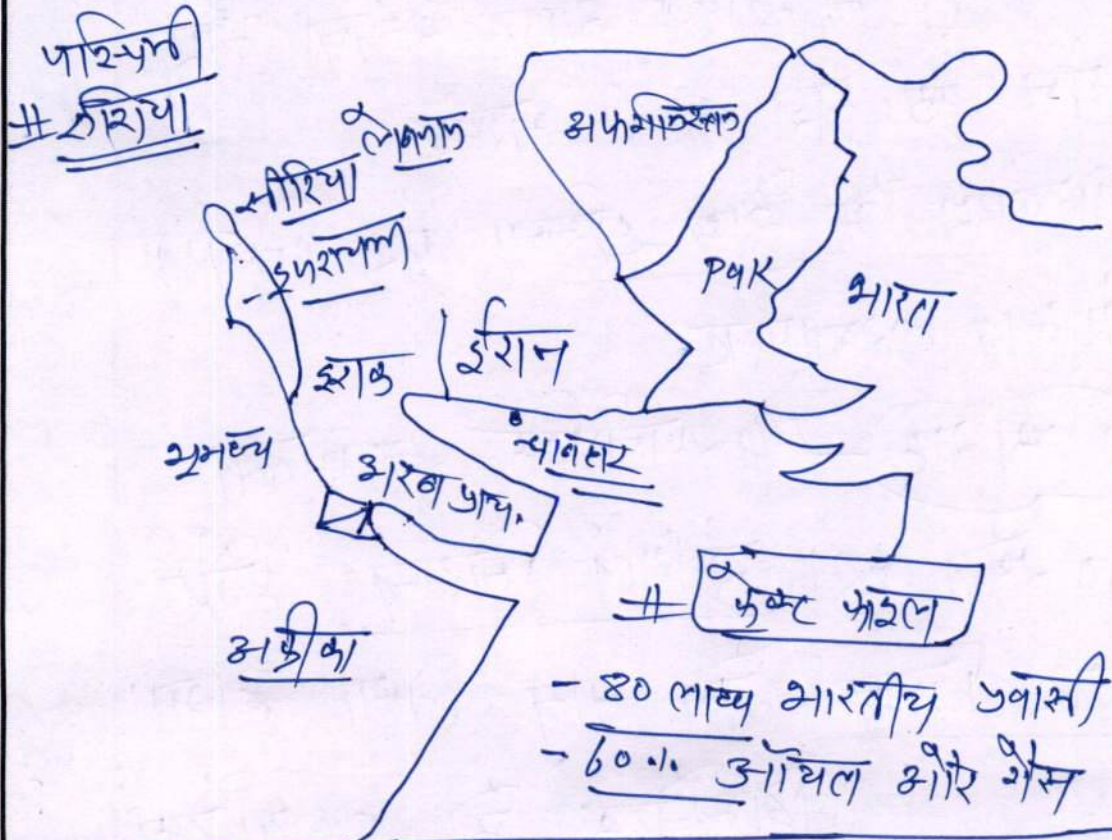 पश्चिमी
# एशिया
लेबनान
सीरिया
इजरायल
अफगानिस्तान
Pak
भारत
इराक
ईरान
भूमध्य
अरब प्राय.
चाबहार
अफ्रीका
# फैक्ट फाइल
- 80 लाख भारतीय प्रवासी
- 60% ऑयल और गैस